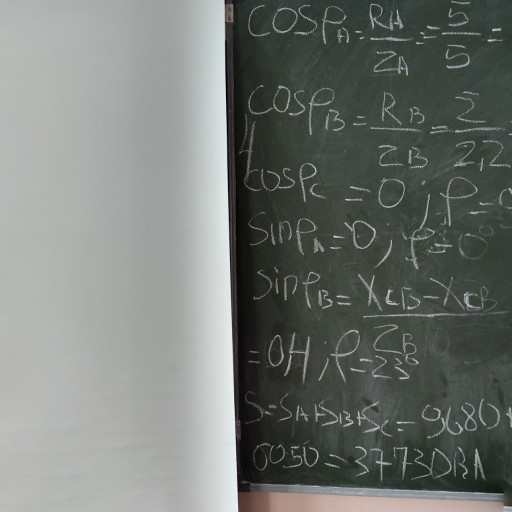 cosρA = RA/ZA = 5/5 =
cosρB = RB/ZB = 2/2,2
cosρc = 0 ; ρ =
sinρA = 0 ; ρ = 0°
sinρB = XLB - XCB / ZB
= 0 ; ρ = 23°
S = SA + SB + Sc = 9680 +
0050 = 37730 BA